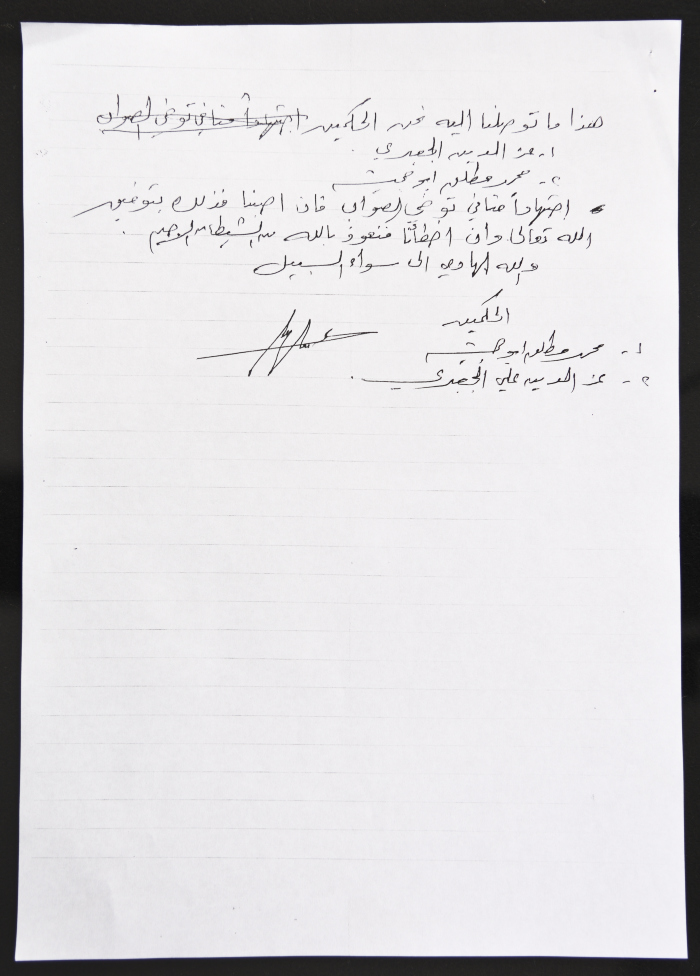 هذا ما توصلنا اليه نحن الحكمين اجتهاداً منا في توخي الصواب
١- عز الدين الجعبري
٢- محمد مطلق ابو
اجتهاداً منا في توخي الصواب فان اصبنا فذلك بتوفيق
الله تعالى وان اخطأنا فنعوذ بالله من الشيطان الرجيم .
والله الهادي الى سواء السبيل
الحكمين
١- محمد مطلق ابو
٢- عز الدين علي الجعبري .